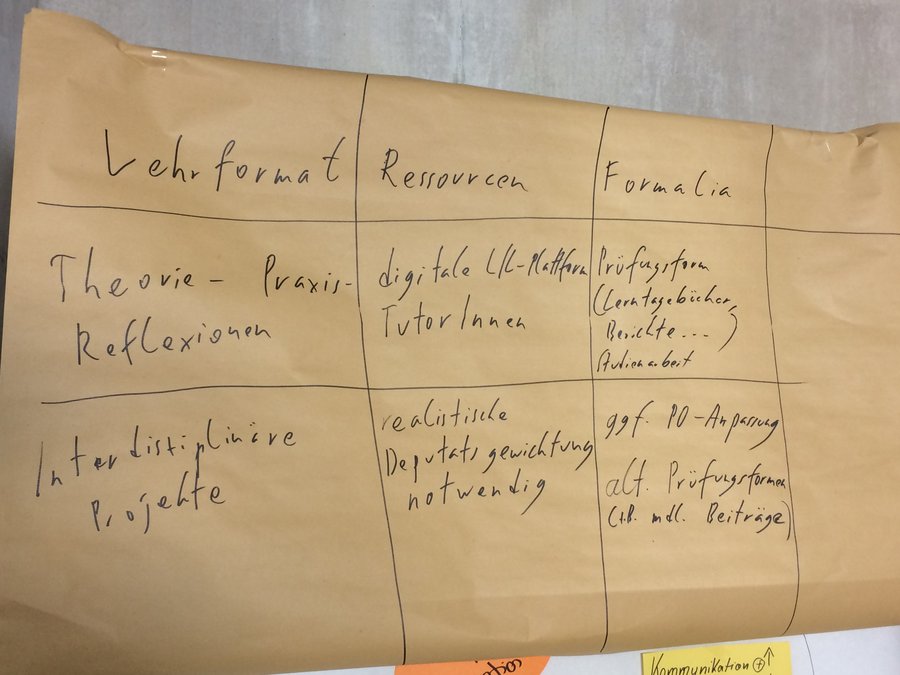 Lehrformat
Ressourcen
Formalia
Theorie - Praxis-
Reflexionen
digitale L/L-Plattform
TutorInnen
Prüfungsform
(Lerntagebücher,
Berichte...)
Studienarbeit
Interdisziplinäre
Projekte
realistische
Deputatsgewichtung
notwendig
ggf. PO-Anpassung
alt. Prüfungsformen
(z.B. mdl. Beiträge)
Kommunikation